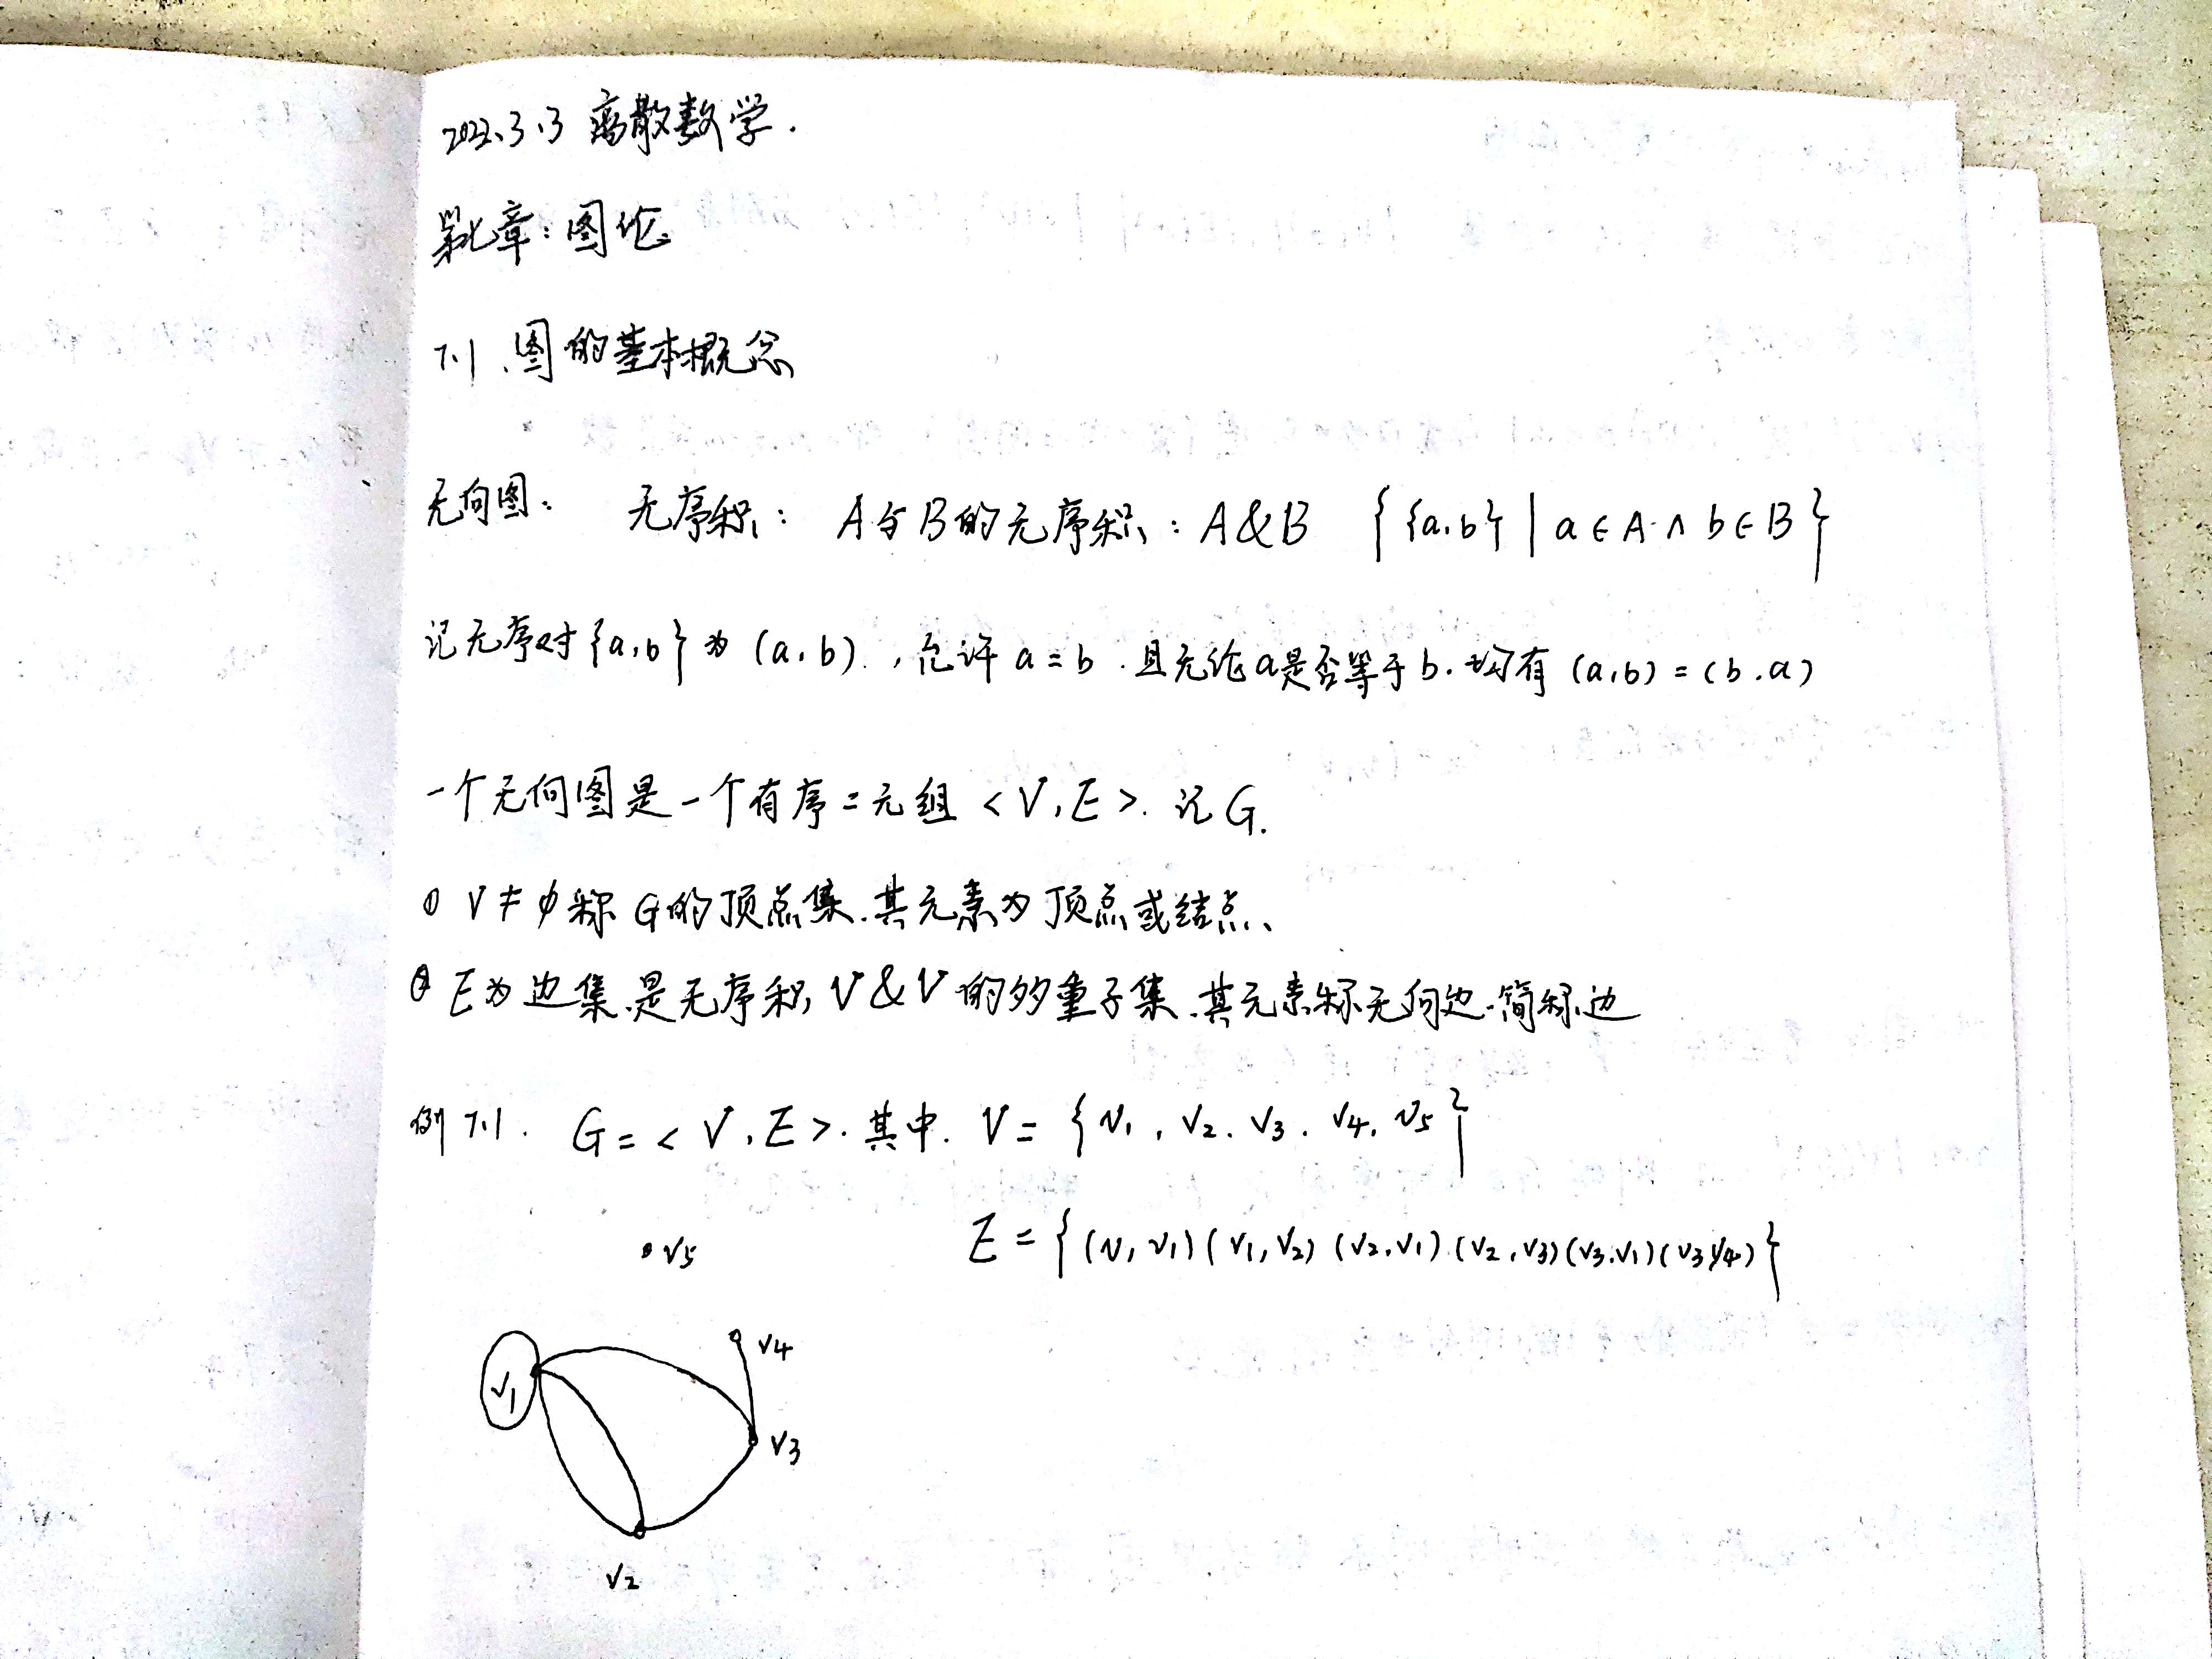 2022.3.3 离散数学.
第七章:图论
7.1 、图的基本概念
无向图: 无序积: A与B的无序积: A&B {{a,b} | a∈A∧b∈B}
记无序对{a,b}为(a,b).,允许a=b.且无论a是否等于b.均有(a,b)=(b,a)
一个无向图是一个有序二元组<V,E>.记G.
① V≠∅称G的顶点集.其元素为顶点或结点、
② E为边集.是无序积V&V的多重子集.其元素称无向边.简称边
例7.1. G=<V,E>.其中. V={v1,v2.v3.v4.v5}
E={(v,v1)(v1,v2)(v2,v1)(v2,v3)(v3,v1)(v3,v4)}
v5
v4
v1
v3
v2